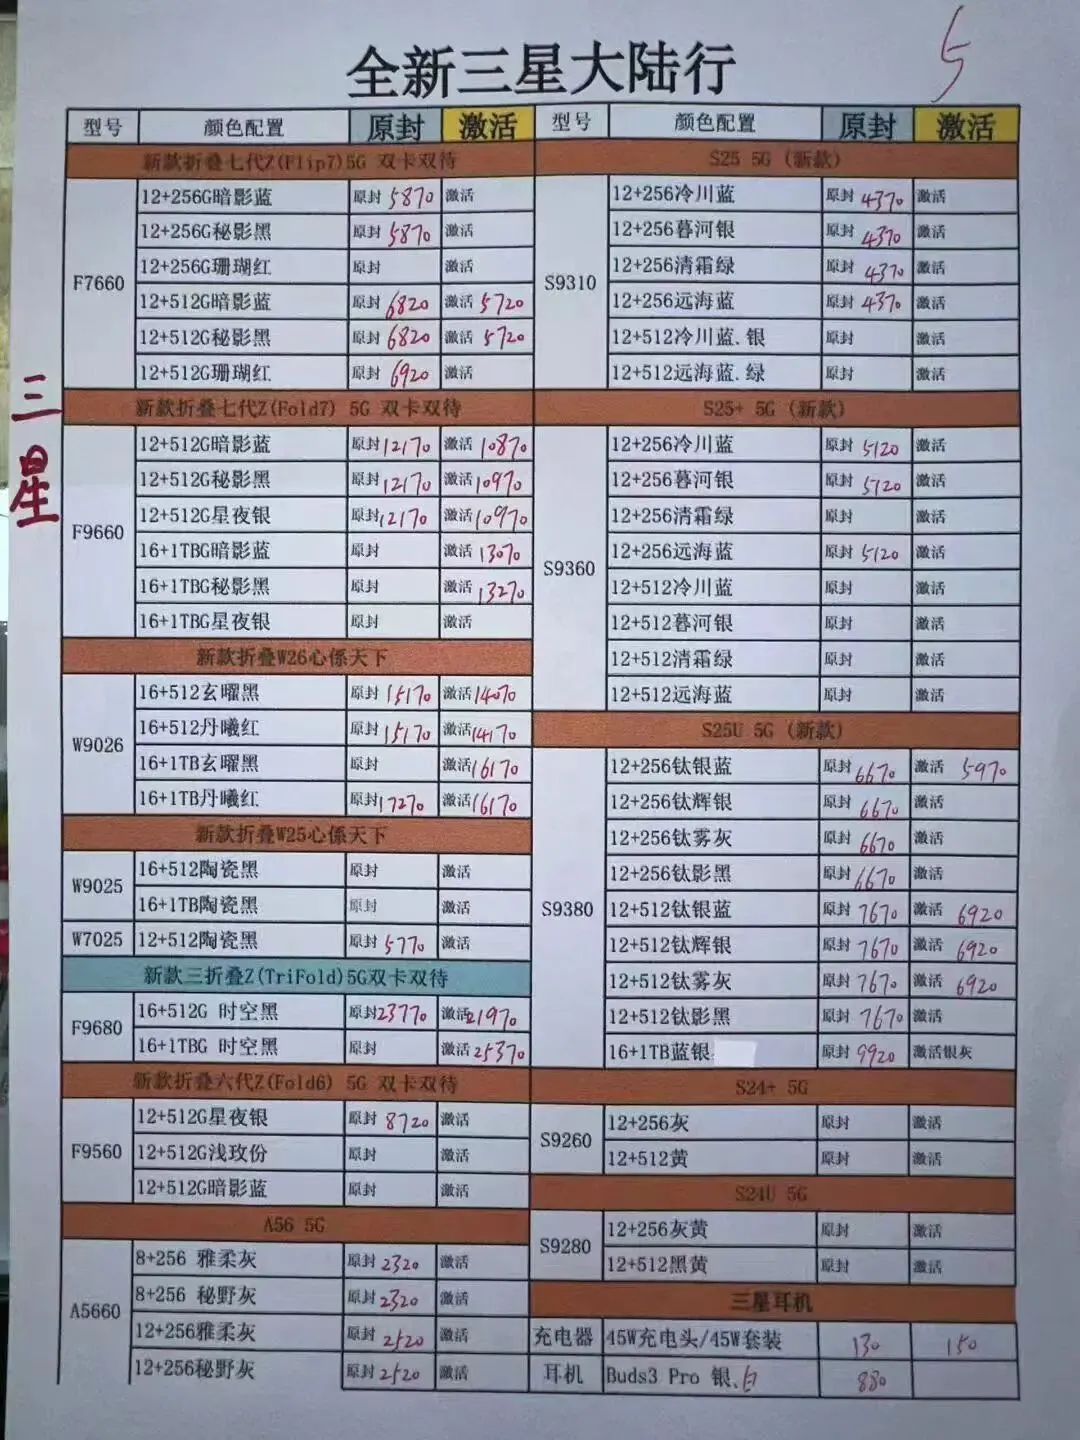 全新三星大陆行
5
三星
型号 颜色配置 原封 激活
新款折叠七代Z(Flip7)5G 双卡双待
F7660
12+256G暗影蓝 原封 5870 激活
12+256G秘影黑 原封 5870 激活
12+256G珊瑚红 原封 激活
12+512G暗影蓝 原封 6820 激活 5720
12+512G秘影黑 原封 6820 激活 5720
12+512G珊瑚红 原封 6920 激活
新款折叠七代Z(Fold7) 5G 双卡双待
F9660
12+512G暗影蓝 原封 12170 激活 10870
12+512G秘影黑 原封 12170 激活 10970
12+512G星夜银 原封 12170 激活 10970
16+1TBG暗影蓝 原封 激活 13070
16+1TBG秘影黑 原封 激活 13270
16+1TBG星夜银 原封 激活
新款折叠W26心係天下
W9026
16+512玄曜黑 原封 15170 激活 14070
16+512丹曦红 原封 15170 激活 14170
16+1TB玄曜黑 原封 激活 16170
16+1TB丹曦红 原封 17270 激活 16170
新款折叠W25心係天下
W9025
16+512陶瓷黑 原封 激活
16+1TB陶瓷黑 原封 激活
W7025 12+512陶瓷黑 原封 5770 激活
新款三折叠Z(TriFold)5G双卡双待
F9680
16+512G 时空黑 原封 23770 激活 21970
16+1TBG 时空黑 原封 激活 25370
新款折叠六代Z(Fold6) 5G 双卡双待
F9560
12+512G星夜银 原封 8720 激活
12+512G浅玫份 原封 激活
12+512G暗影蓝 原封 激活
A56 5G
A5660
8+256 雅柔灰 原封 2320 激活
8+256 秘野灰 原封 2320 激活
12+256雅柔灰 原封 2520 激活
12+256秘野灰 原封 2520 激活
型号 颜色配置 原封 激活
S25 5G (新款)
S9310
12+256冷川蓝 原封 4370 激活
12+256暮河银 原封 4370 激活
12+256清霜绿 原封 4370 激活
12+256远海蓝 原封 4370 激活
12+512冷川蓝.银 原封 激活
12+512远海蓝.绿 原封 激活
S25+ 5G (新款)
S9360
12+256冷川蓝 原封 5120 激活
12+256暮河银 原封 5120 激活
12+256清霜绿 原封 激活
12+256远海蓝 原封 5120 激活
12+512冷川蓝 原封 激活
12+512暮河银 原封 激活
12+512清霜绿 原封 激活
12+512远海蓝 原封 激活
S25U 5G (新款)
S9380
12+256钛银蓝 原封 6670 激活 5970
12+256钛辉银 原封 6670 激活
12+256钛雾灰 原封 6670 激活
12+256钛影黑 原封 6670 激活
12+512钛银蓝 原封 7670 激活 6920
12+512钛辉银 原封 7670 激活 6920
12+512钛雾灰 原封 7670 激活 6920
12+512钛影黑 原封 7670 激活
16+1TB蓝银 原封 9920 激活银灰
S24+ 5G
S9260
12+256灰 原封 激活
12+512黄 原封 激活
S24U 5G
S9280
12+256灰黄 原封 激活
12+512黑黄 原封 激活
三星耳机
充电器 45W充电头/45W套装 130 150
耳机 Buds3 Pro 银.白 880